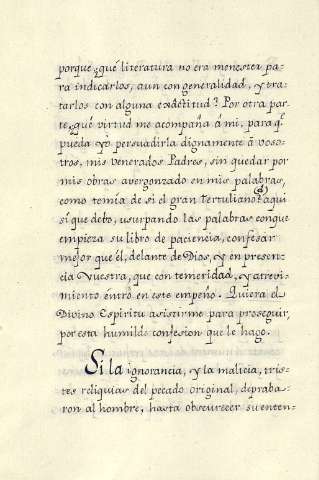 porque ¿qué literatura no era menester pa-
ra indicarlos, aun con generalidad, y tra-
tarlos con alguna exâctitud? Por otra par-
te ¿qué virtud me acompaña á mi, para q.e
pueda yo persuadirla dignamente á voso-
tros, mis venerados Padres, sin quedar por
mis obras avergonzado en mis palabras,
como temia de si el gran Tertuliano? aqui
sí que debo, usurpando las palabras conque
empieza su libro de paciencia, confesar
mejor que él, delante de Dios, y en presen-
cia vuestra, que con temeridad, y atrevi-
miento entro en este empeño. Quiera el
Divino Espiritu asistirme para proseguir,
por esta humilde confesion que le hago.
Si la ignorancia, y la malicia, tris-
tes reliquias del pecado original, depraba-
ron al hombre, hasta obscurecer su enten-